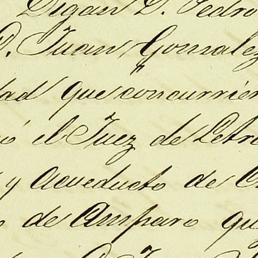 Digan D. Pedro
D. Juan Gonzalez
dad que concurrier
ó el Juez de Letra
y acueducto de C
o de Amparo qu